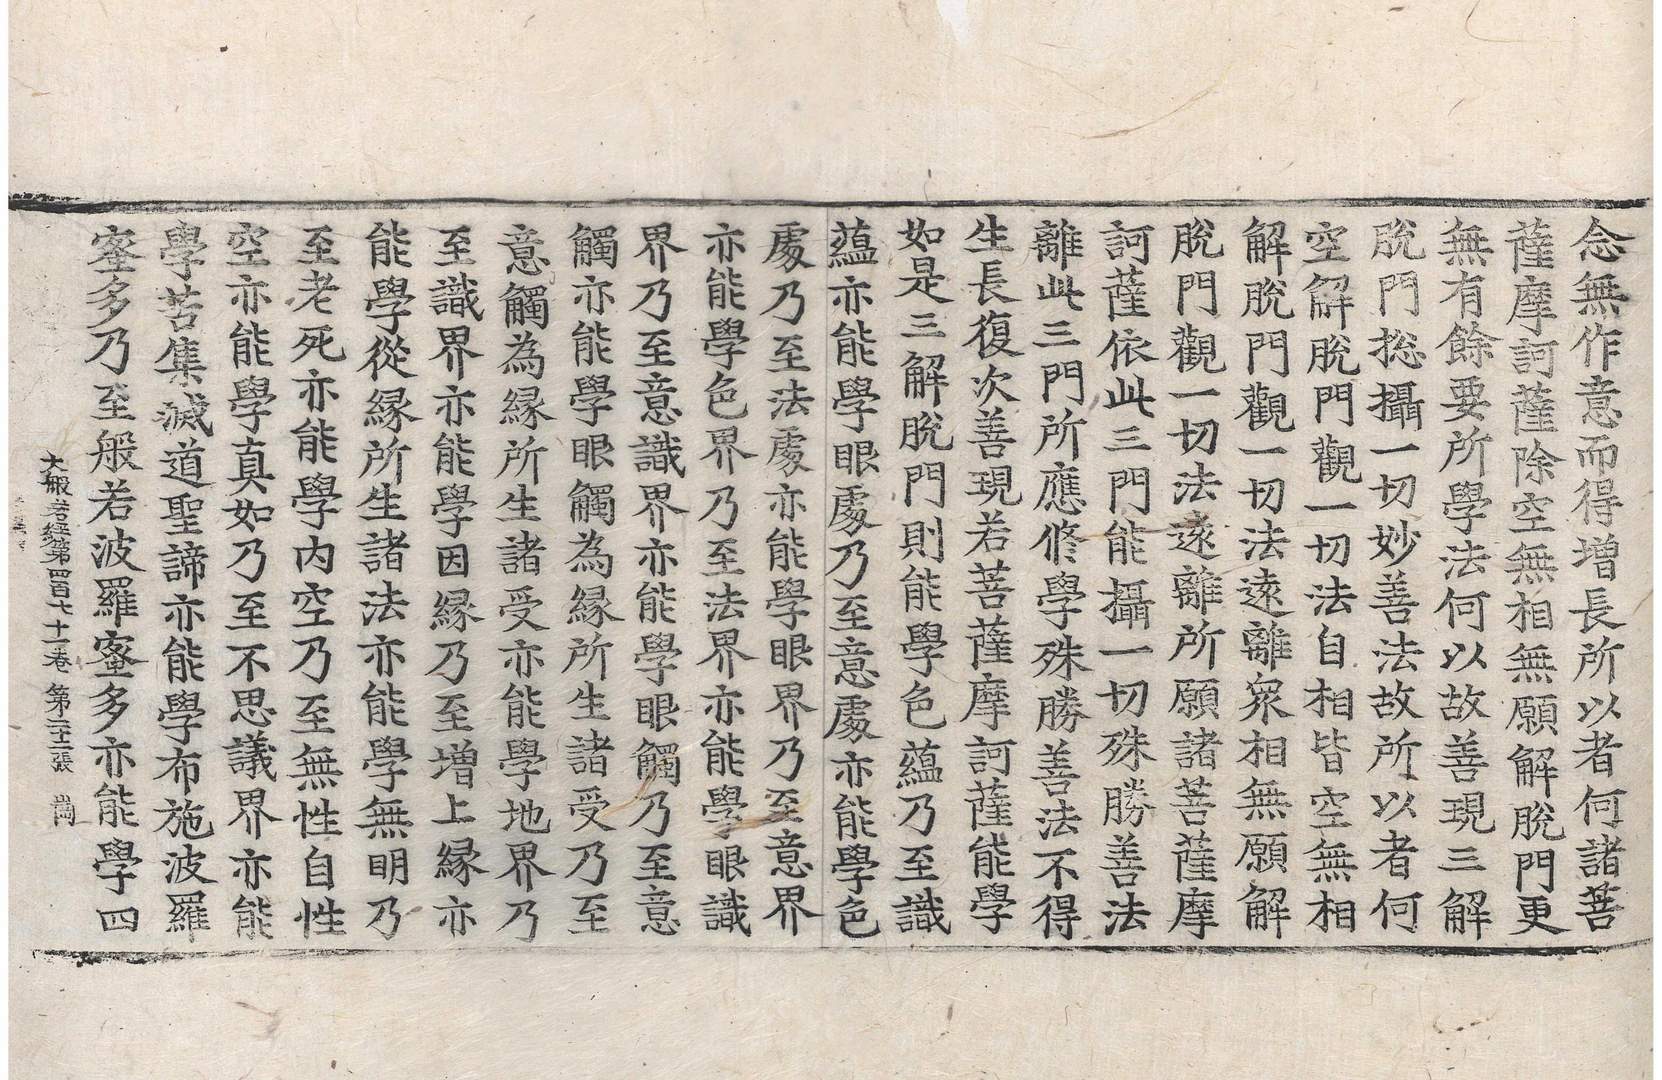 念無作意而得增長所以者何諸菩
薩摩訶薩除空無相無願解脫門更
無有餘要所學法何以故善現三解
脫門揔攝一切妙善法故所以者何
空解脫門觀一切法自相皆空無相
解脫門觀一切法遠離衆相無願解
脫門觀一切法遠離所願諸菩薩摩
訶薩依此三門能攝一切殊勝善法
離此三門所應修學殊勝善法不得
生長復次善現若菩薩摩訶薩能學
如是三解脫門則能學色蘊乃至識
蘊亦能學眼處乃至意處亦能學色
處乃至法處亦能學眼界乃至意界
亦能學色界乃至法界亦能學眼識
界乃至意識界亦能學眼觸乃至意
觸亦能學眼觸為緣所生諸受乃至
意觸為緣所生諸受亦能學地界乃
至識界亦能學因緣乃至增上緣亦
能學從緣所生諸法亦能學無明乃
至老死亦能學內空乃至無性自性
空亦能學真如乃至不思議界亦能
學苦集滅道聖諦亦能學布施波羅
蜜多乃至般若波羅蜜多亦能學四
大般若經第四百七十二卷 第二十二張 崗